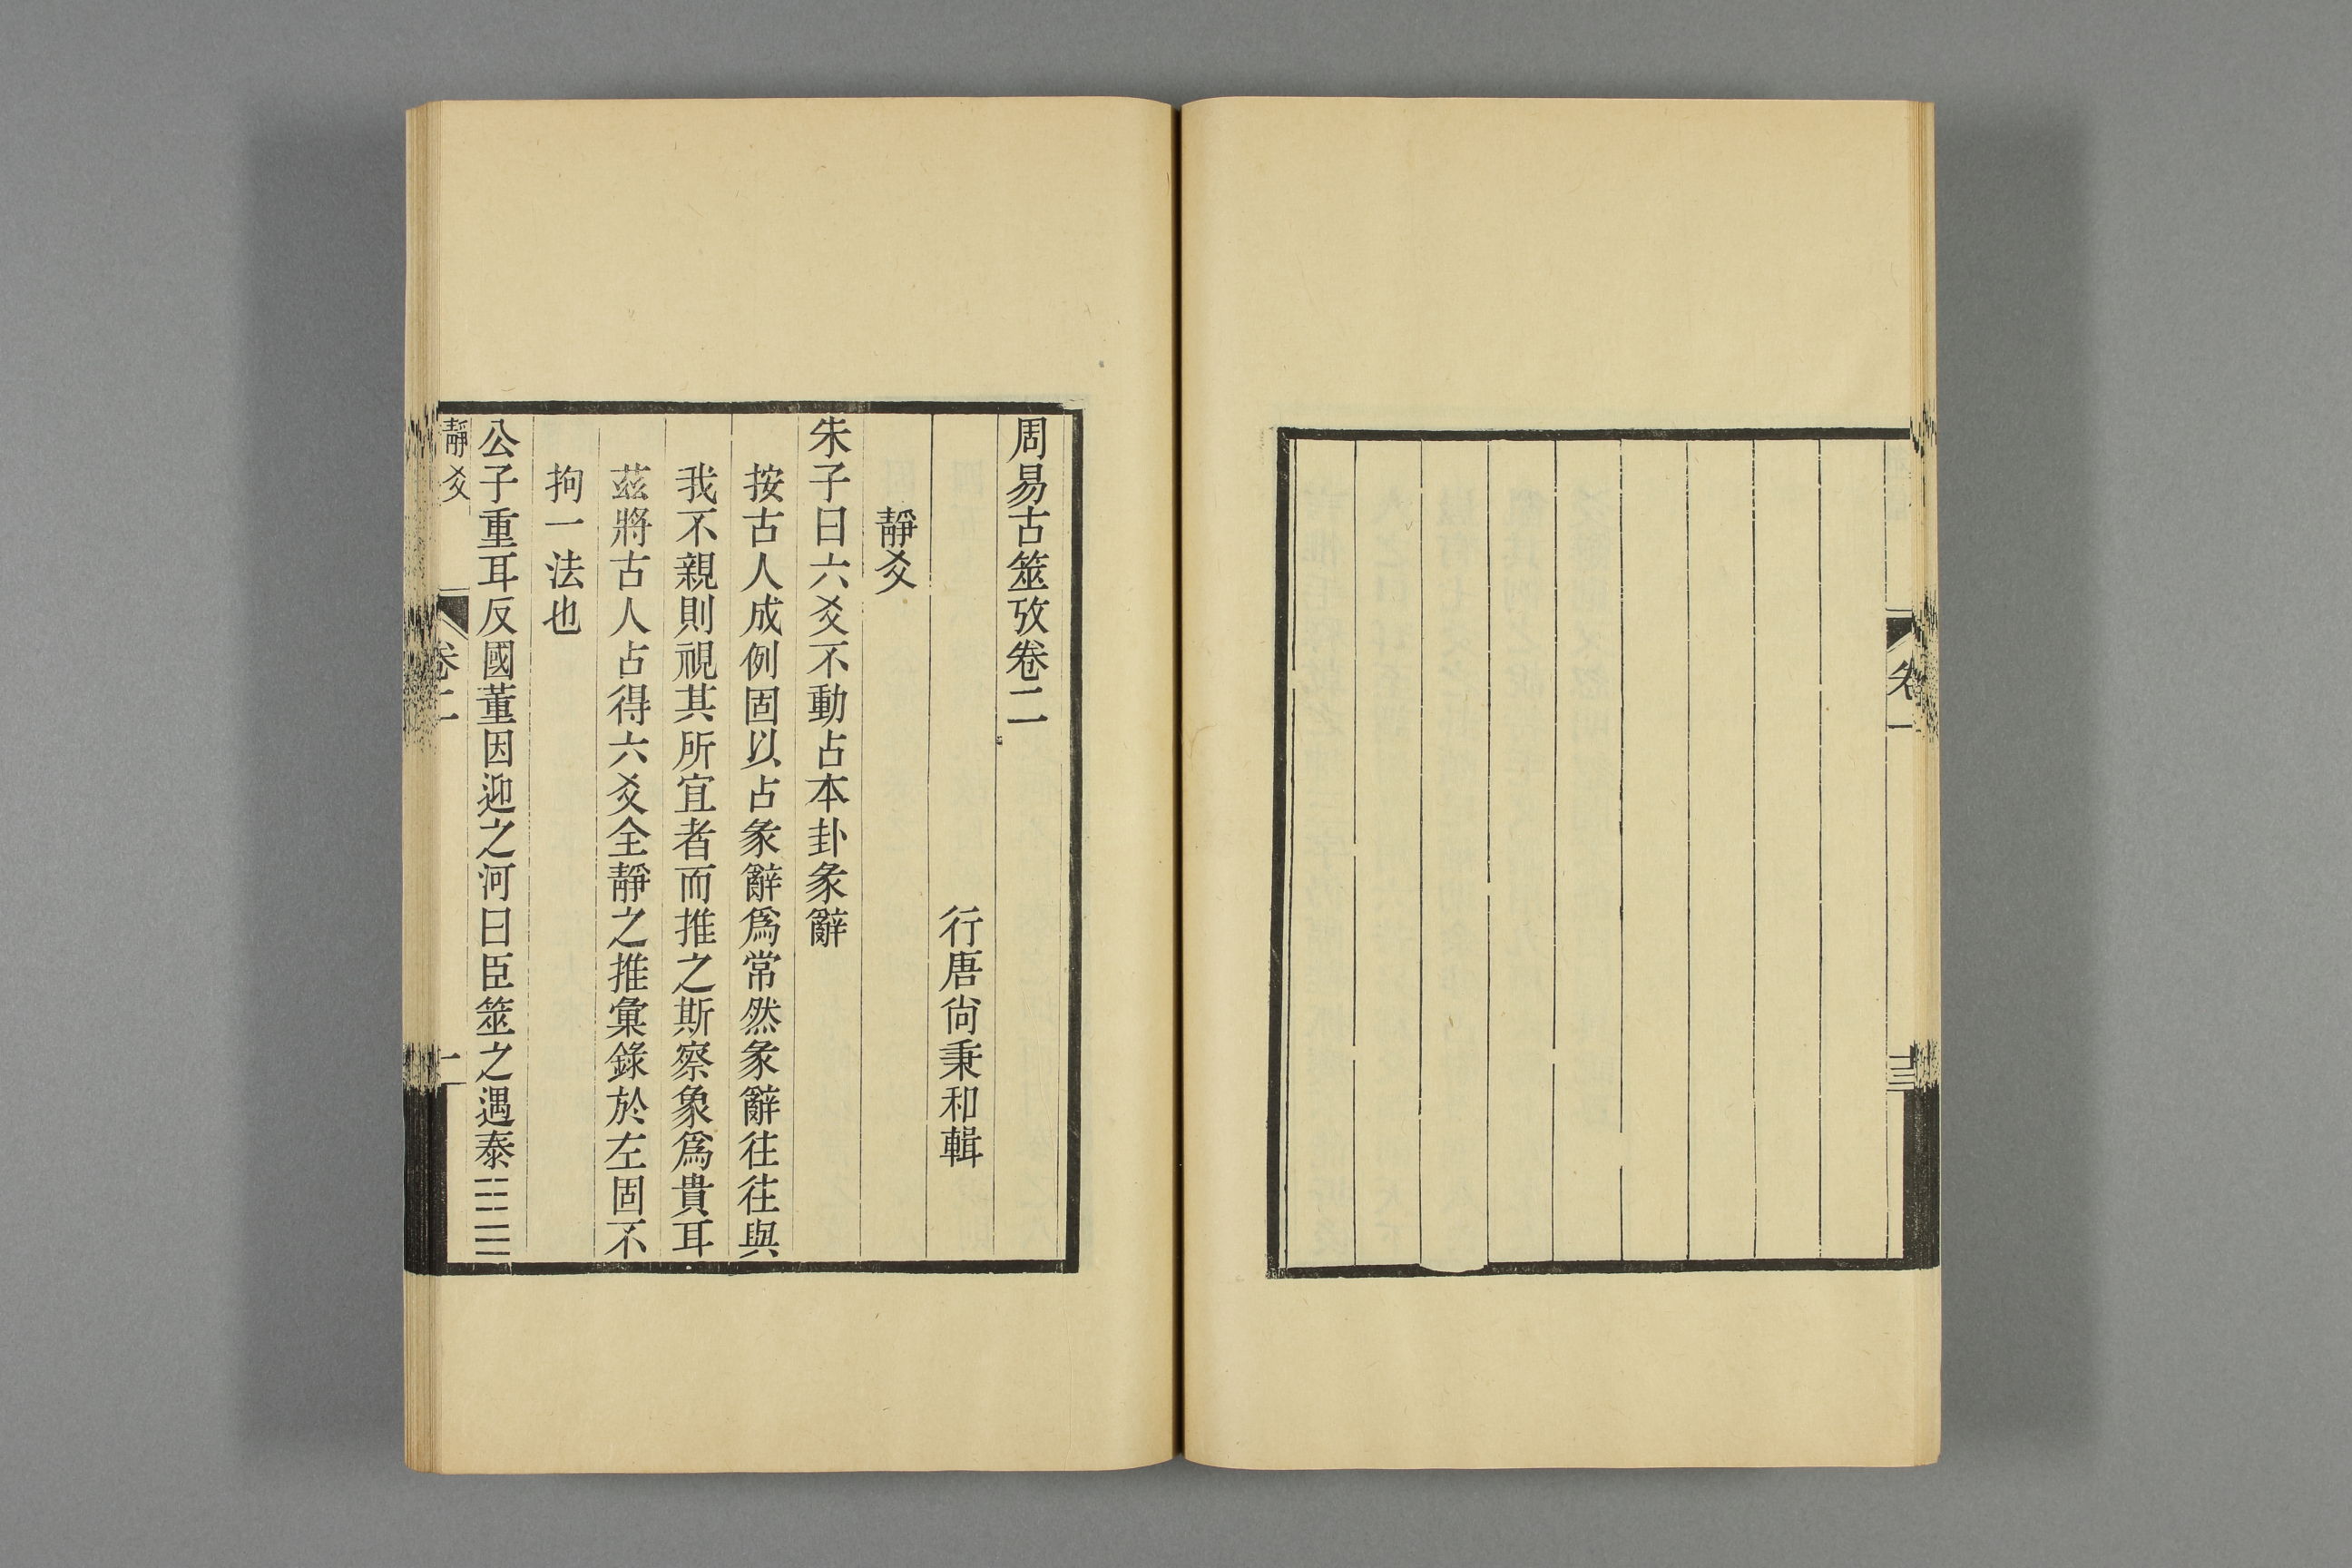 卷一
十三
周易古筮攷卷二
行唐尙秉和輯
靜爻
朱子曰六爻不動占本卦彖辭
按古人成例固以占彖辭爲常然彖辭往往與
我不親則視其所宜者而推之斯察象爲貴耳
茲將古人占得六爻全靜之推彙錄於左固不
拘一法也
公子重耳反國董因迎之河曰臣筮之遇泰䷊
靜爻
卷二
一